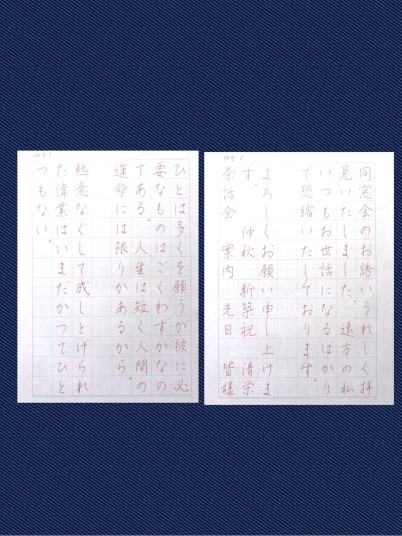 同窓会のお誘いうれしく拝
見いたしました。遠方の私
いつもお世話になるばかり
で恐縮いたしております。
よろしくお願い申し上げま
す。 仲秋 新築祝 清栄
茶話会 案内 元日 皆様
ひとは多くを願うが彼に必
要なものはごくわずかなの
である。人生は短く人間の
運命には限りがあるから。
熱意なくして成しとげられ
た偉業はいまだかつてひと
つもない。